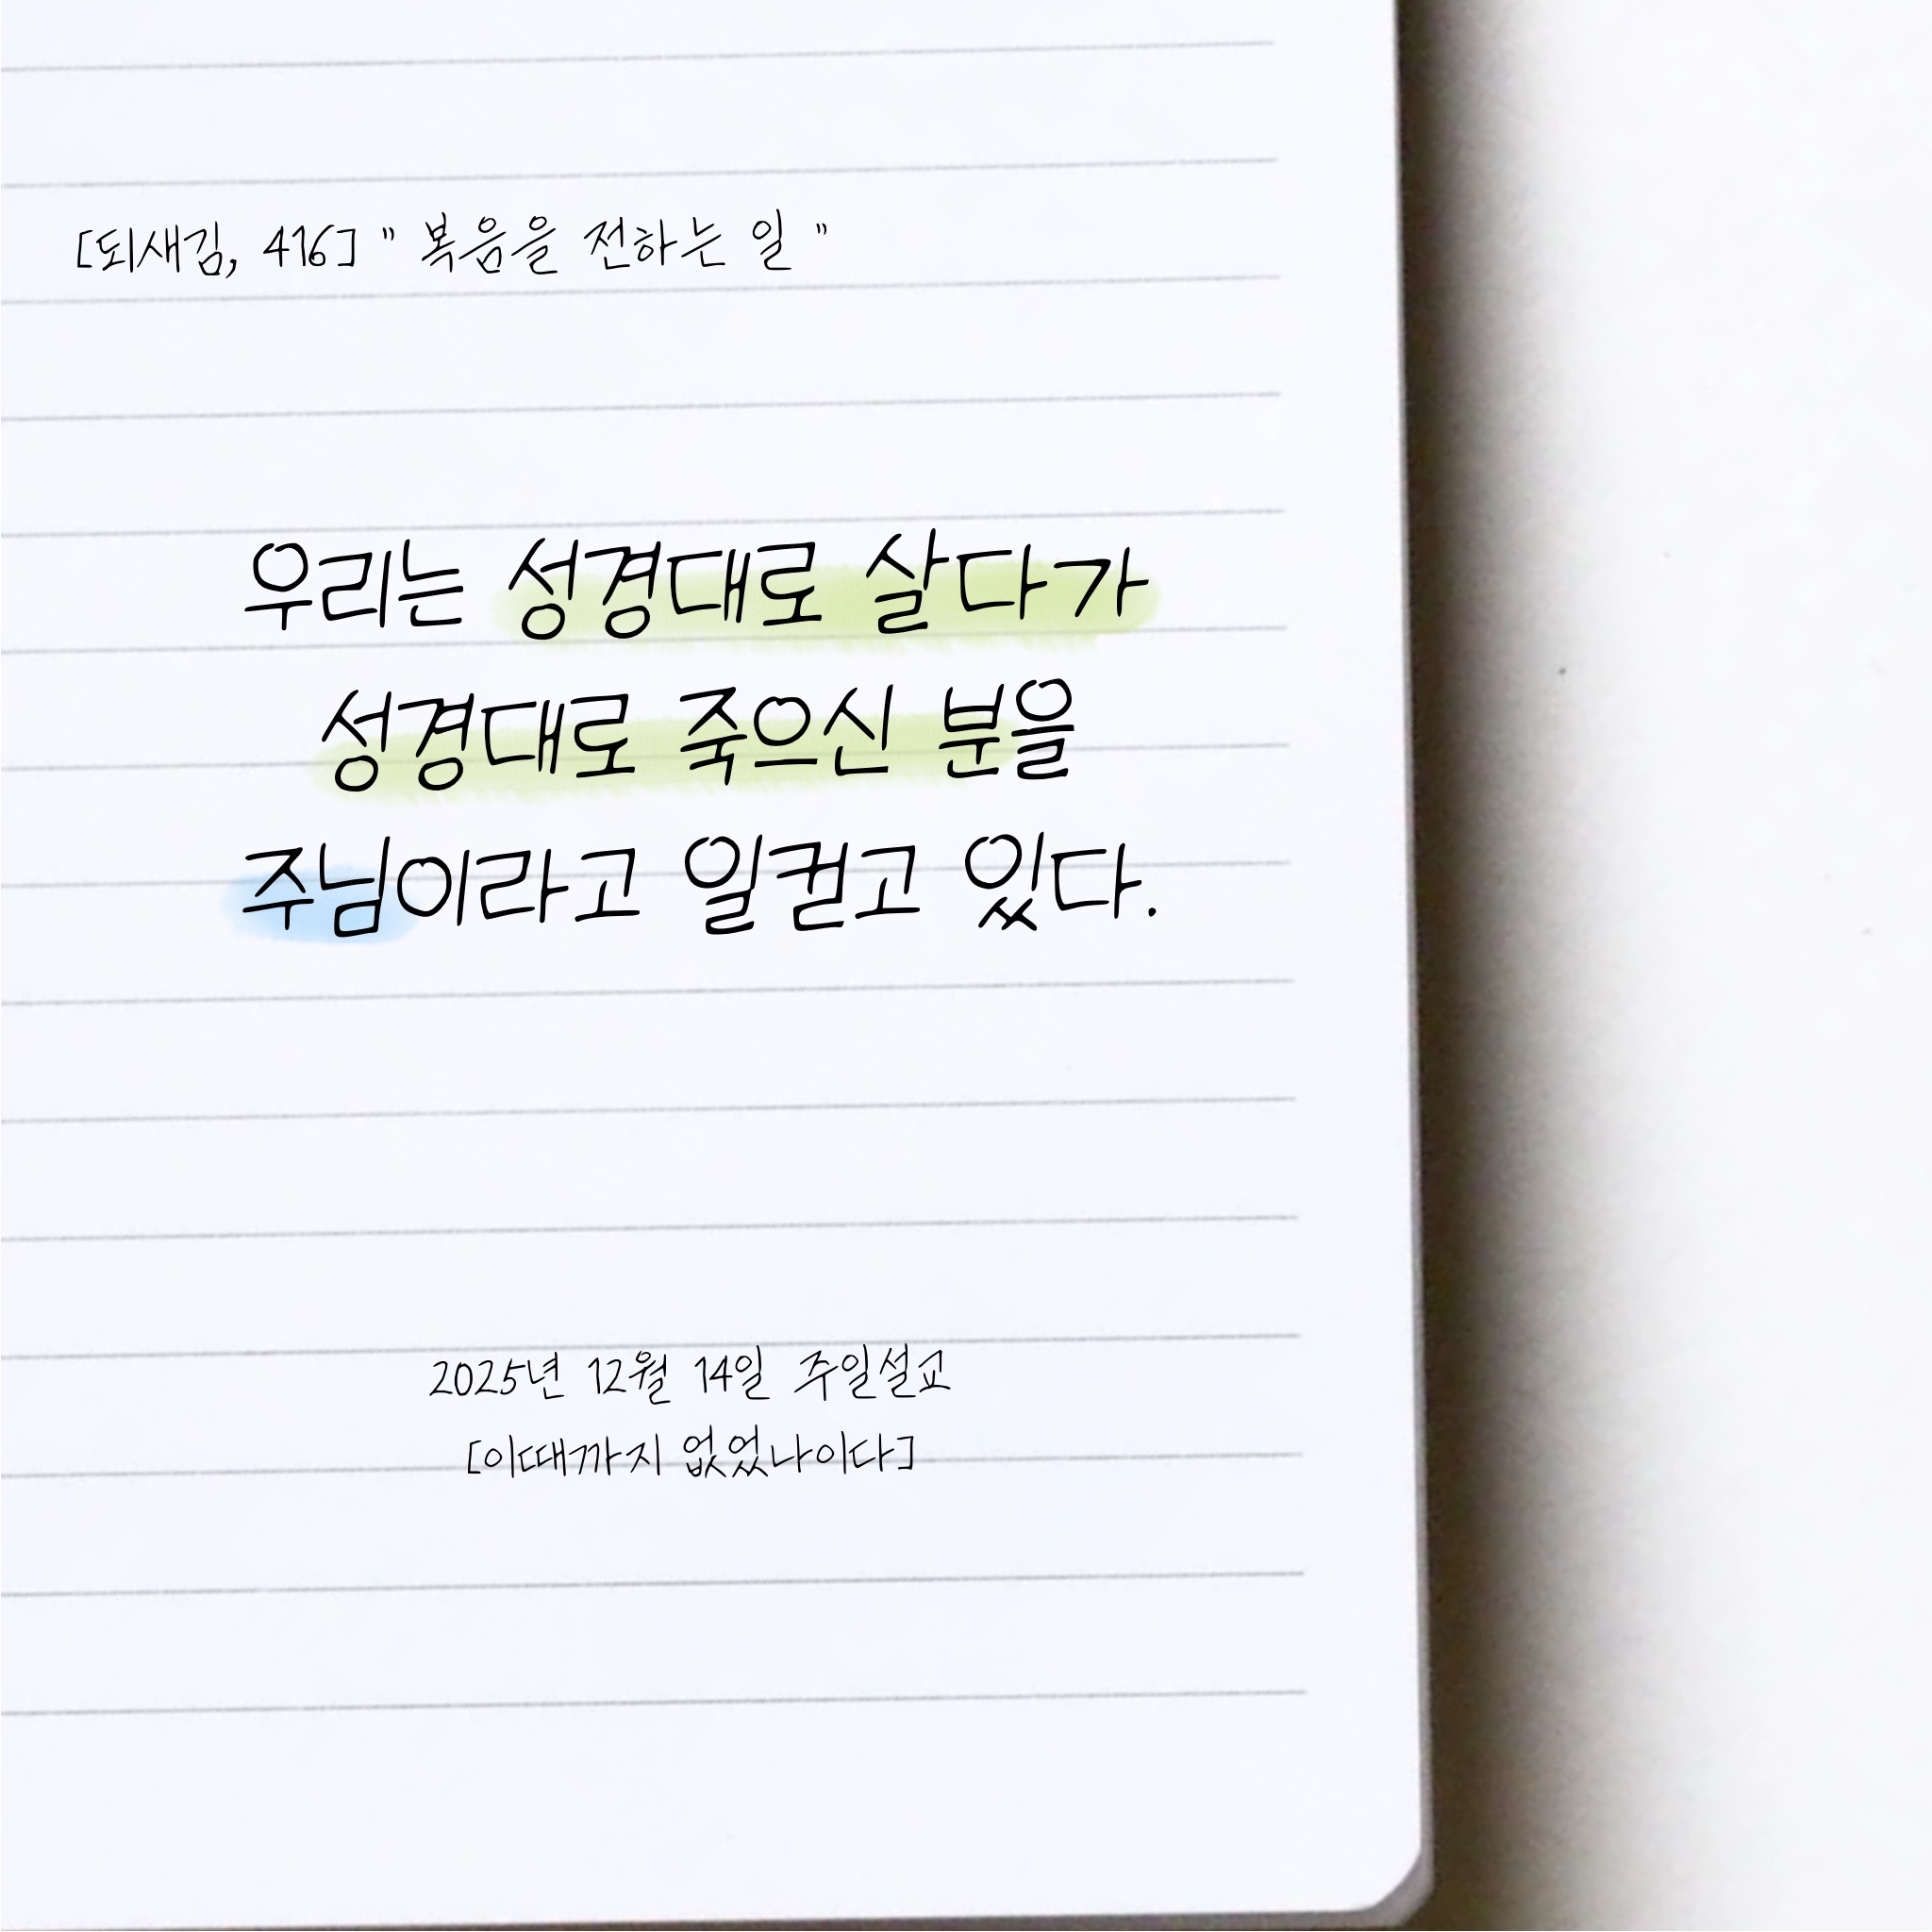 [되새김, 416] " 복음을 전하는 일 "
우리는 성경대로 살다가
성경대로 죽으신 분을
주님이라고 일컫고 있다.
2025년 12월 14일 주일설교
[이때까지 없었나이다]